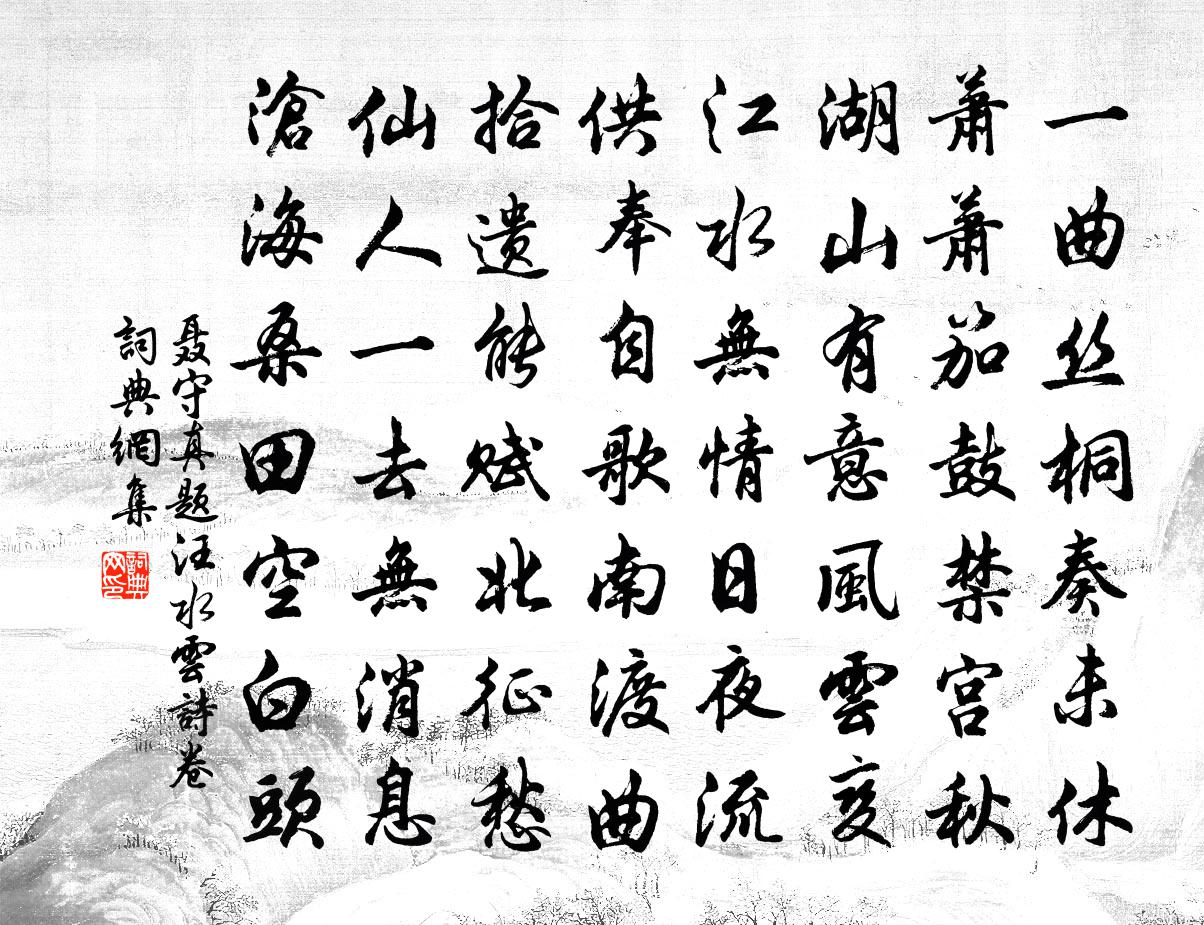 一曲丝桐奏未休
萧萧笳鼓禁宫秋
湖山有意風雲变
江水無情日夜流
供奉自歌南渡曲
拾遗能赋北征愁
仙人一去無消息
滄海桑田空白頭
聂守真题汪水雲詩卷
詞典網集
詞典网印